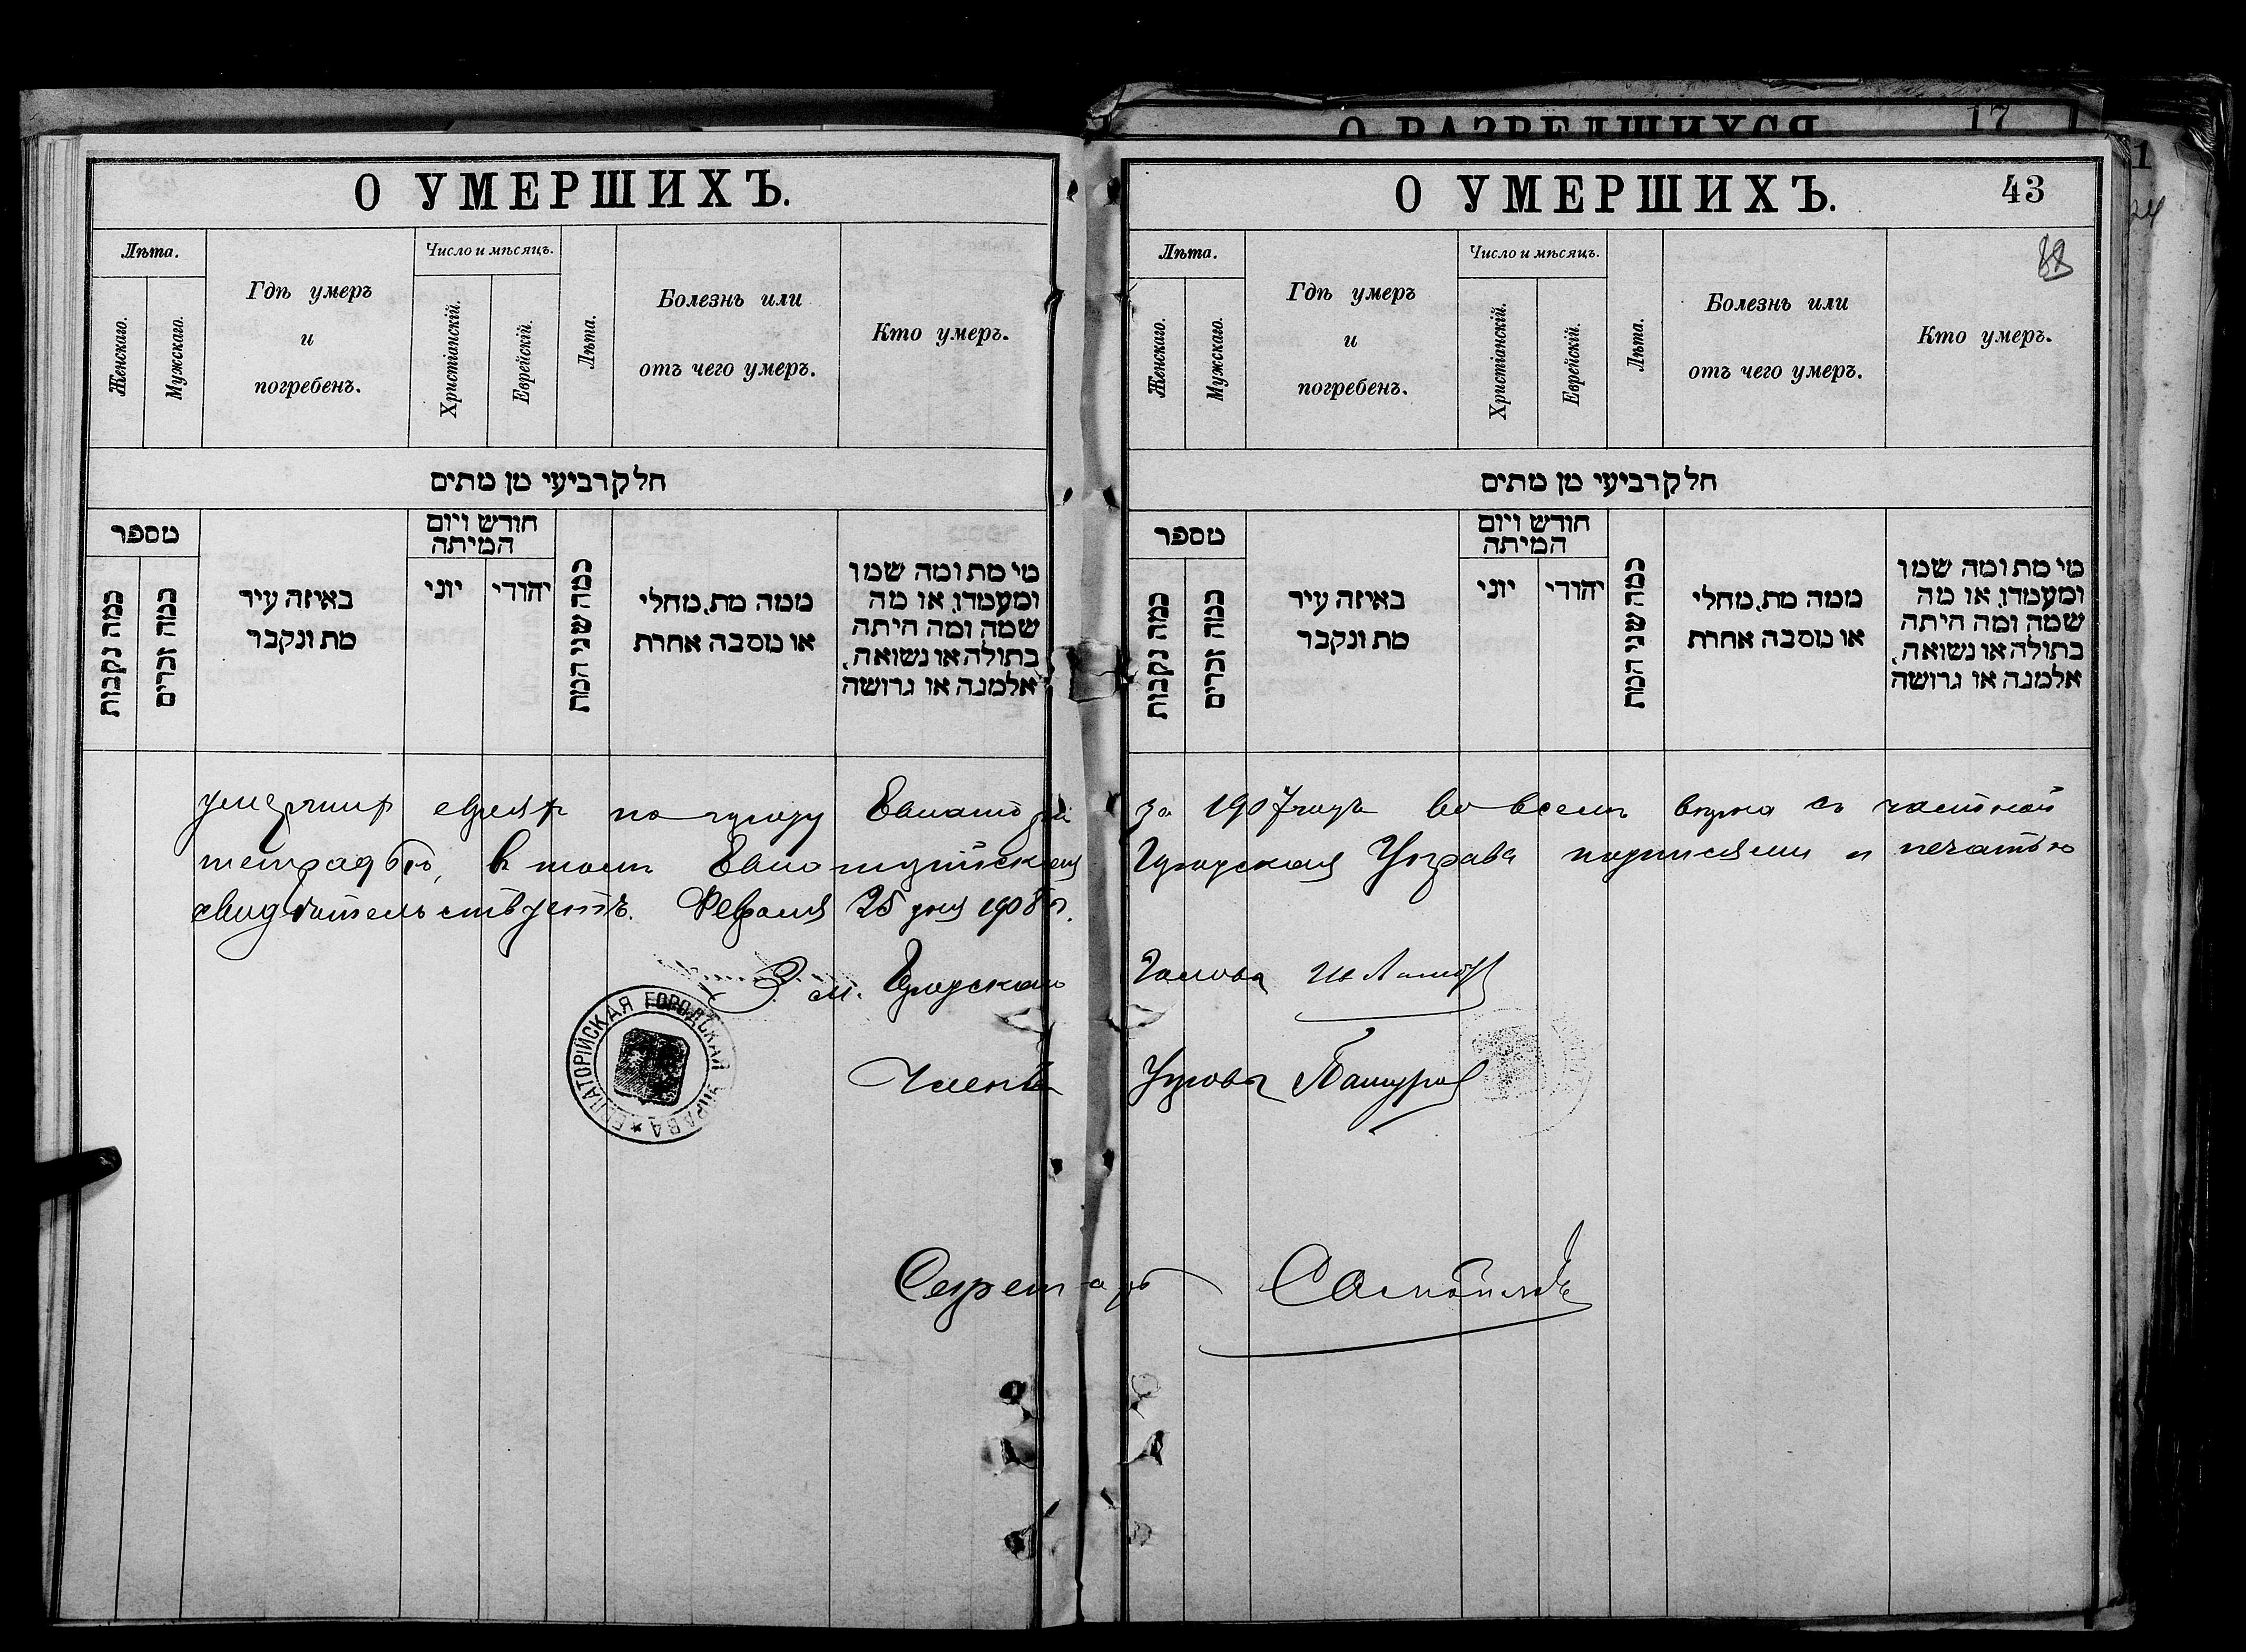 О РАЗВЕДШИХСЯ 17
О УМЕРШИХЪ.
Лѣта.
Женскаго.
Мужскаго.
Гдѣ умеръ
и
погребенъ.
Число и мѣсяцъ.
Христіанскій.
Еврейскій.
Лѣта.
Болезнь или
отъ чего умеръ.
Кто умеръ.
חלק רביעי מן מתים
מספר
כמה נקבות
כמה זכרים
באיזה עיר
מת ונקבר
חודש ויום
המיתה
יוני
יהודי
כמה שני המת
ממה מת, מחלי
או מסבה אחרת
מי מת ומה שמו
ומעמדו, או מה
שמה ומה היתה
בתולה או נשואה,
אלמנה או גרושה
О УМЕРШИХЪ.
43
Лѣта.
Женскаго.
Мужскаго.
Гдѣ умеръ
и
погребенъ.
Число и мѣсяцъ.
Христіанскій.
Еврейскій.
Лѣта.
Болезнь или
отъ чего умеръ.
Кто умеръ.
חלק רביעי מן מתים
מספר
כמה נקבות
כמה זכרים
באיזה עיר
מת ונקבר
חודש ויום
המיתה
יוני
יהודי
כמה שני המת
ממה מת, מחלי
או מסבה אחרת
מי מת ומה שמו
ומעמדו, או מה
שמה ומה היתה
בתולה או נשואה,
אלמנה או גרושה
умершихъ евреяхъ по городу Евпаторіи за 1907 годъ во всемъ вѣрна съ частной
тетрадью, въ томъ Евпаторійская Городская Управа подписями и печатью
свидѣтельствуетъ. Февраля 25 дня 1908 г.
Городского Голова
Членъ Управы
Секретарь
ЕВПАТОРІЙСКАЯ ГОРОДСКАЯ УПРАВА